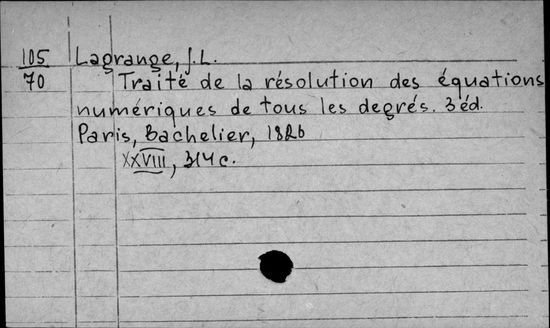 105 Lagrange, J.L.
70 Traité de la résolution des équations
numériques de tous les degrés. 3 éd.
Paris, Bachelier, 1826
XXVIII, 314 c.